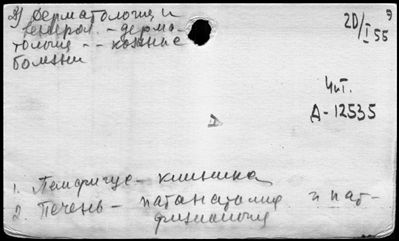 2) Дерматология и
венерол. - дерма-
тология - - кожные
болезни
2D/I 55
Чит.
А-12535
1. Пемфигус - клиника
2. Печень - патанатомия и пат-
физиология